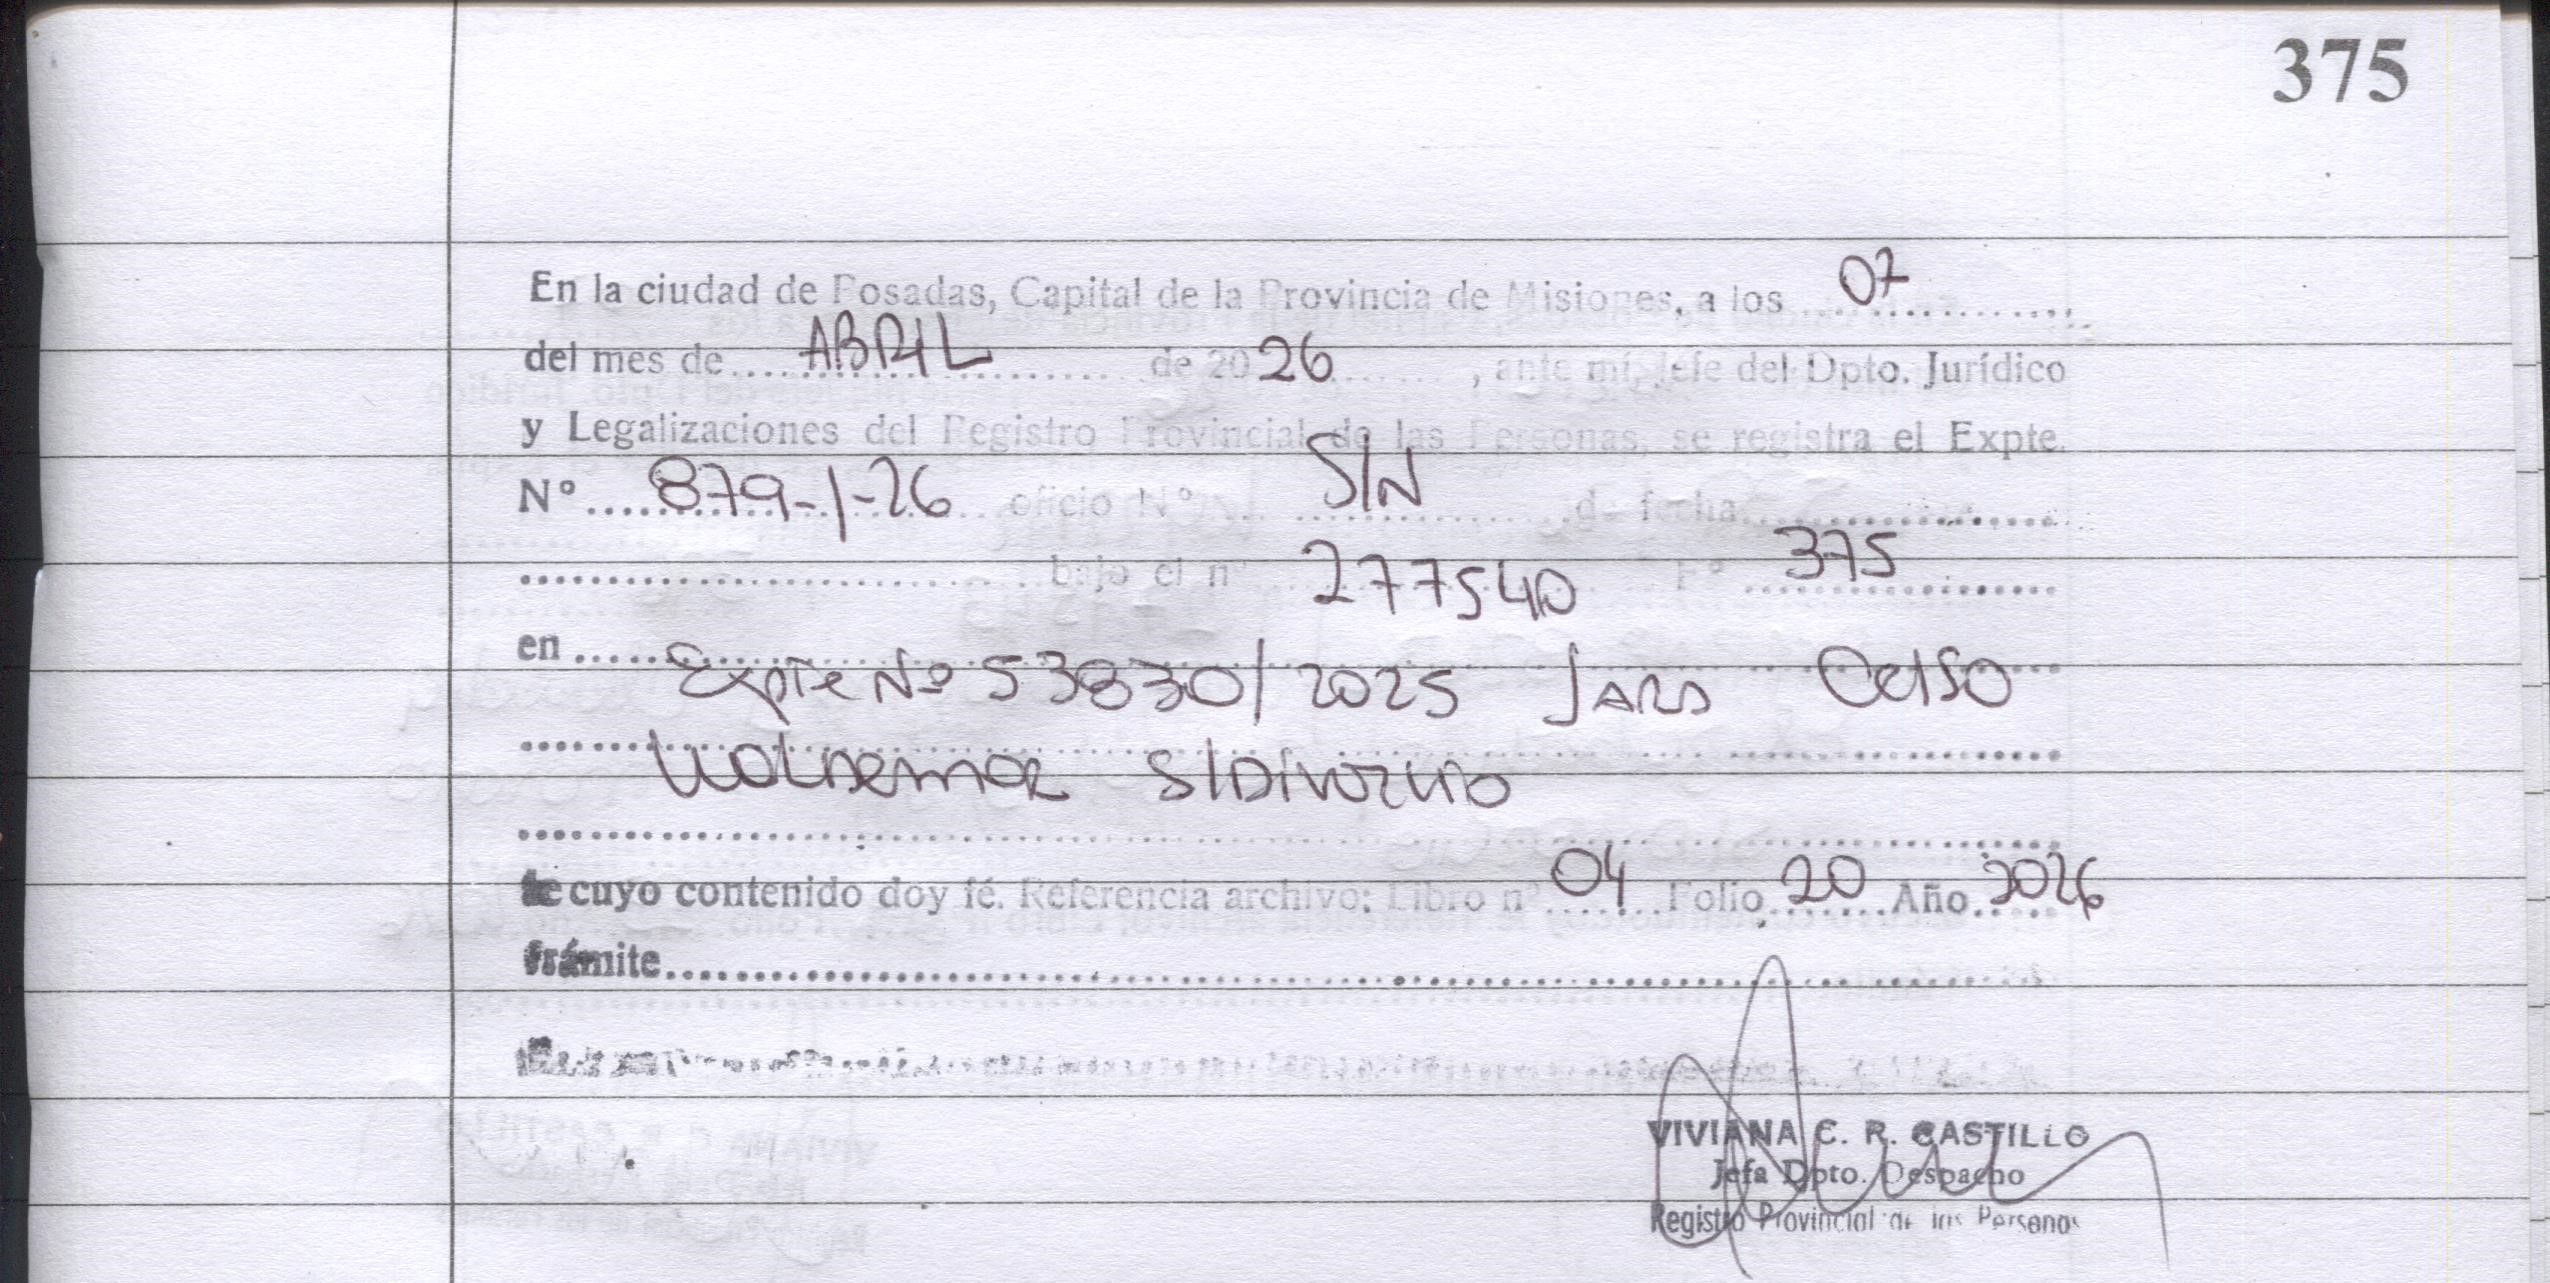 375
En la ciudad de Posadas, Capital de la Provincia de Misiones, a los 07
del mes de ABRIL de 2026, ante mí, Jefe del Dpto. Jurídico
y Legalizaciones del Registro Provincial de las Personas, se registra el Expte.
Nº 879-1-26 oficio Nº S/N de fecha
bajo el nº 277540 Fº 375
en Expte Nº 53830/2025 Celso
S/Divorcio
de cuyo contenido doy fé. Referencia archivo: Libro nº 04 Folio 20 Año 2026
Trámite
VIVIANA C. R. CASTILLO
Jefa Dpto. Despacho
Registro Provincial de las Personas